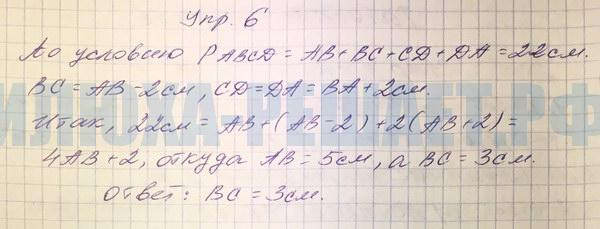 Упр. 6
По условию P ABCD = AB + BC + CD + DA = 22см.
BC = AB - 2см, CD = DA = BA + 2см.
Итак, 22см = AB + (AB - 2) + 2(AB + 2) =
4AB + 2, откуда AB = 5см, а BC = 3см.
Ответ: BC = 3см.